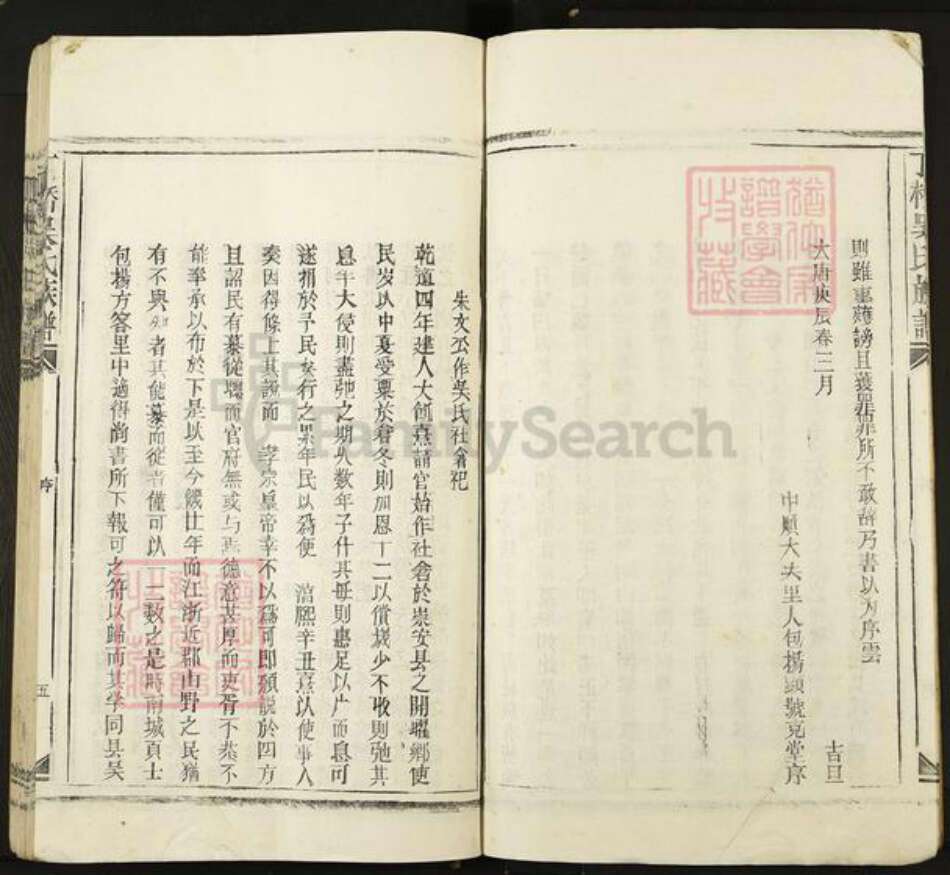 則雖重蒙謗且獲罪非所不敢辭乃書以为序雲
大唐庚辰春三月 吉旦
中順大夫里人包楊頭號克堂序
朱文公作吳氏社倉祀
乾道四年建人大飢熹請官始作社倉於崇安县之開耀鄉使
民岁以中夏受粟於倉冬則加息十二以償歲少不收則弛其
息半大侵則盡弛之期以数年子什其毋則惠足以广而息可
遂捐於予民矣行之累年民以為便 淳熙辛丑熹以使事入
奏因得條上其說而 孝宗皇帝幸不以爲可即頒說於四方
且詔民有慕從 而官府無或与焉德意甚厚而吏胥不恭不
能奉承以布於下是以至今幾廿年而江浙近郡山野之民猶
有不與知者其能慕而從者僅可以一二数之是時南城貢士
包楊方客里中適得尚書所下報可之符以歸而其学同县吳
丁橋吳氏族譜
序
五
FamilySearch